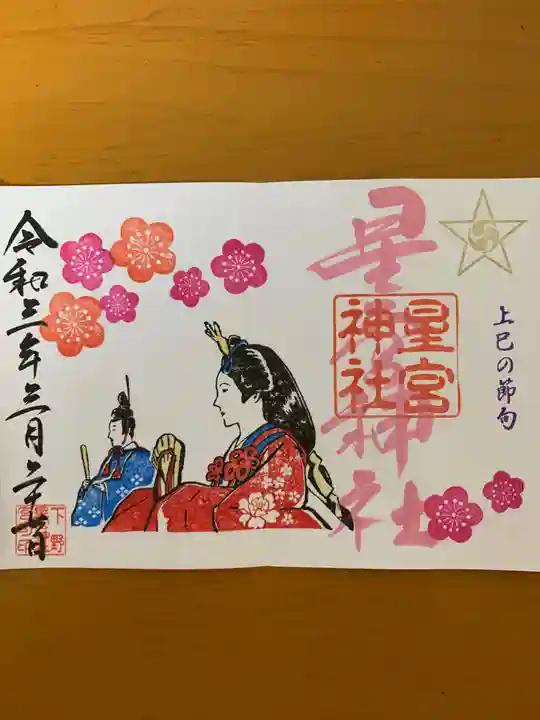 上巳の節句
星宮神社
星宮
神社
令和三年三月二十七日
下野